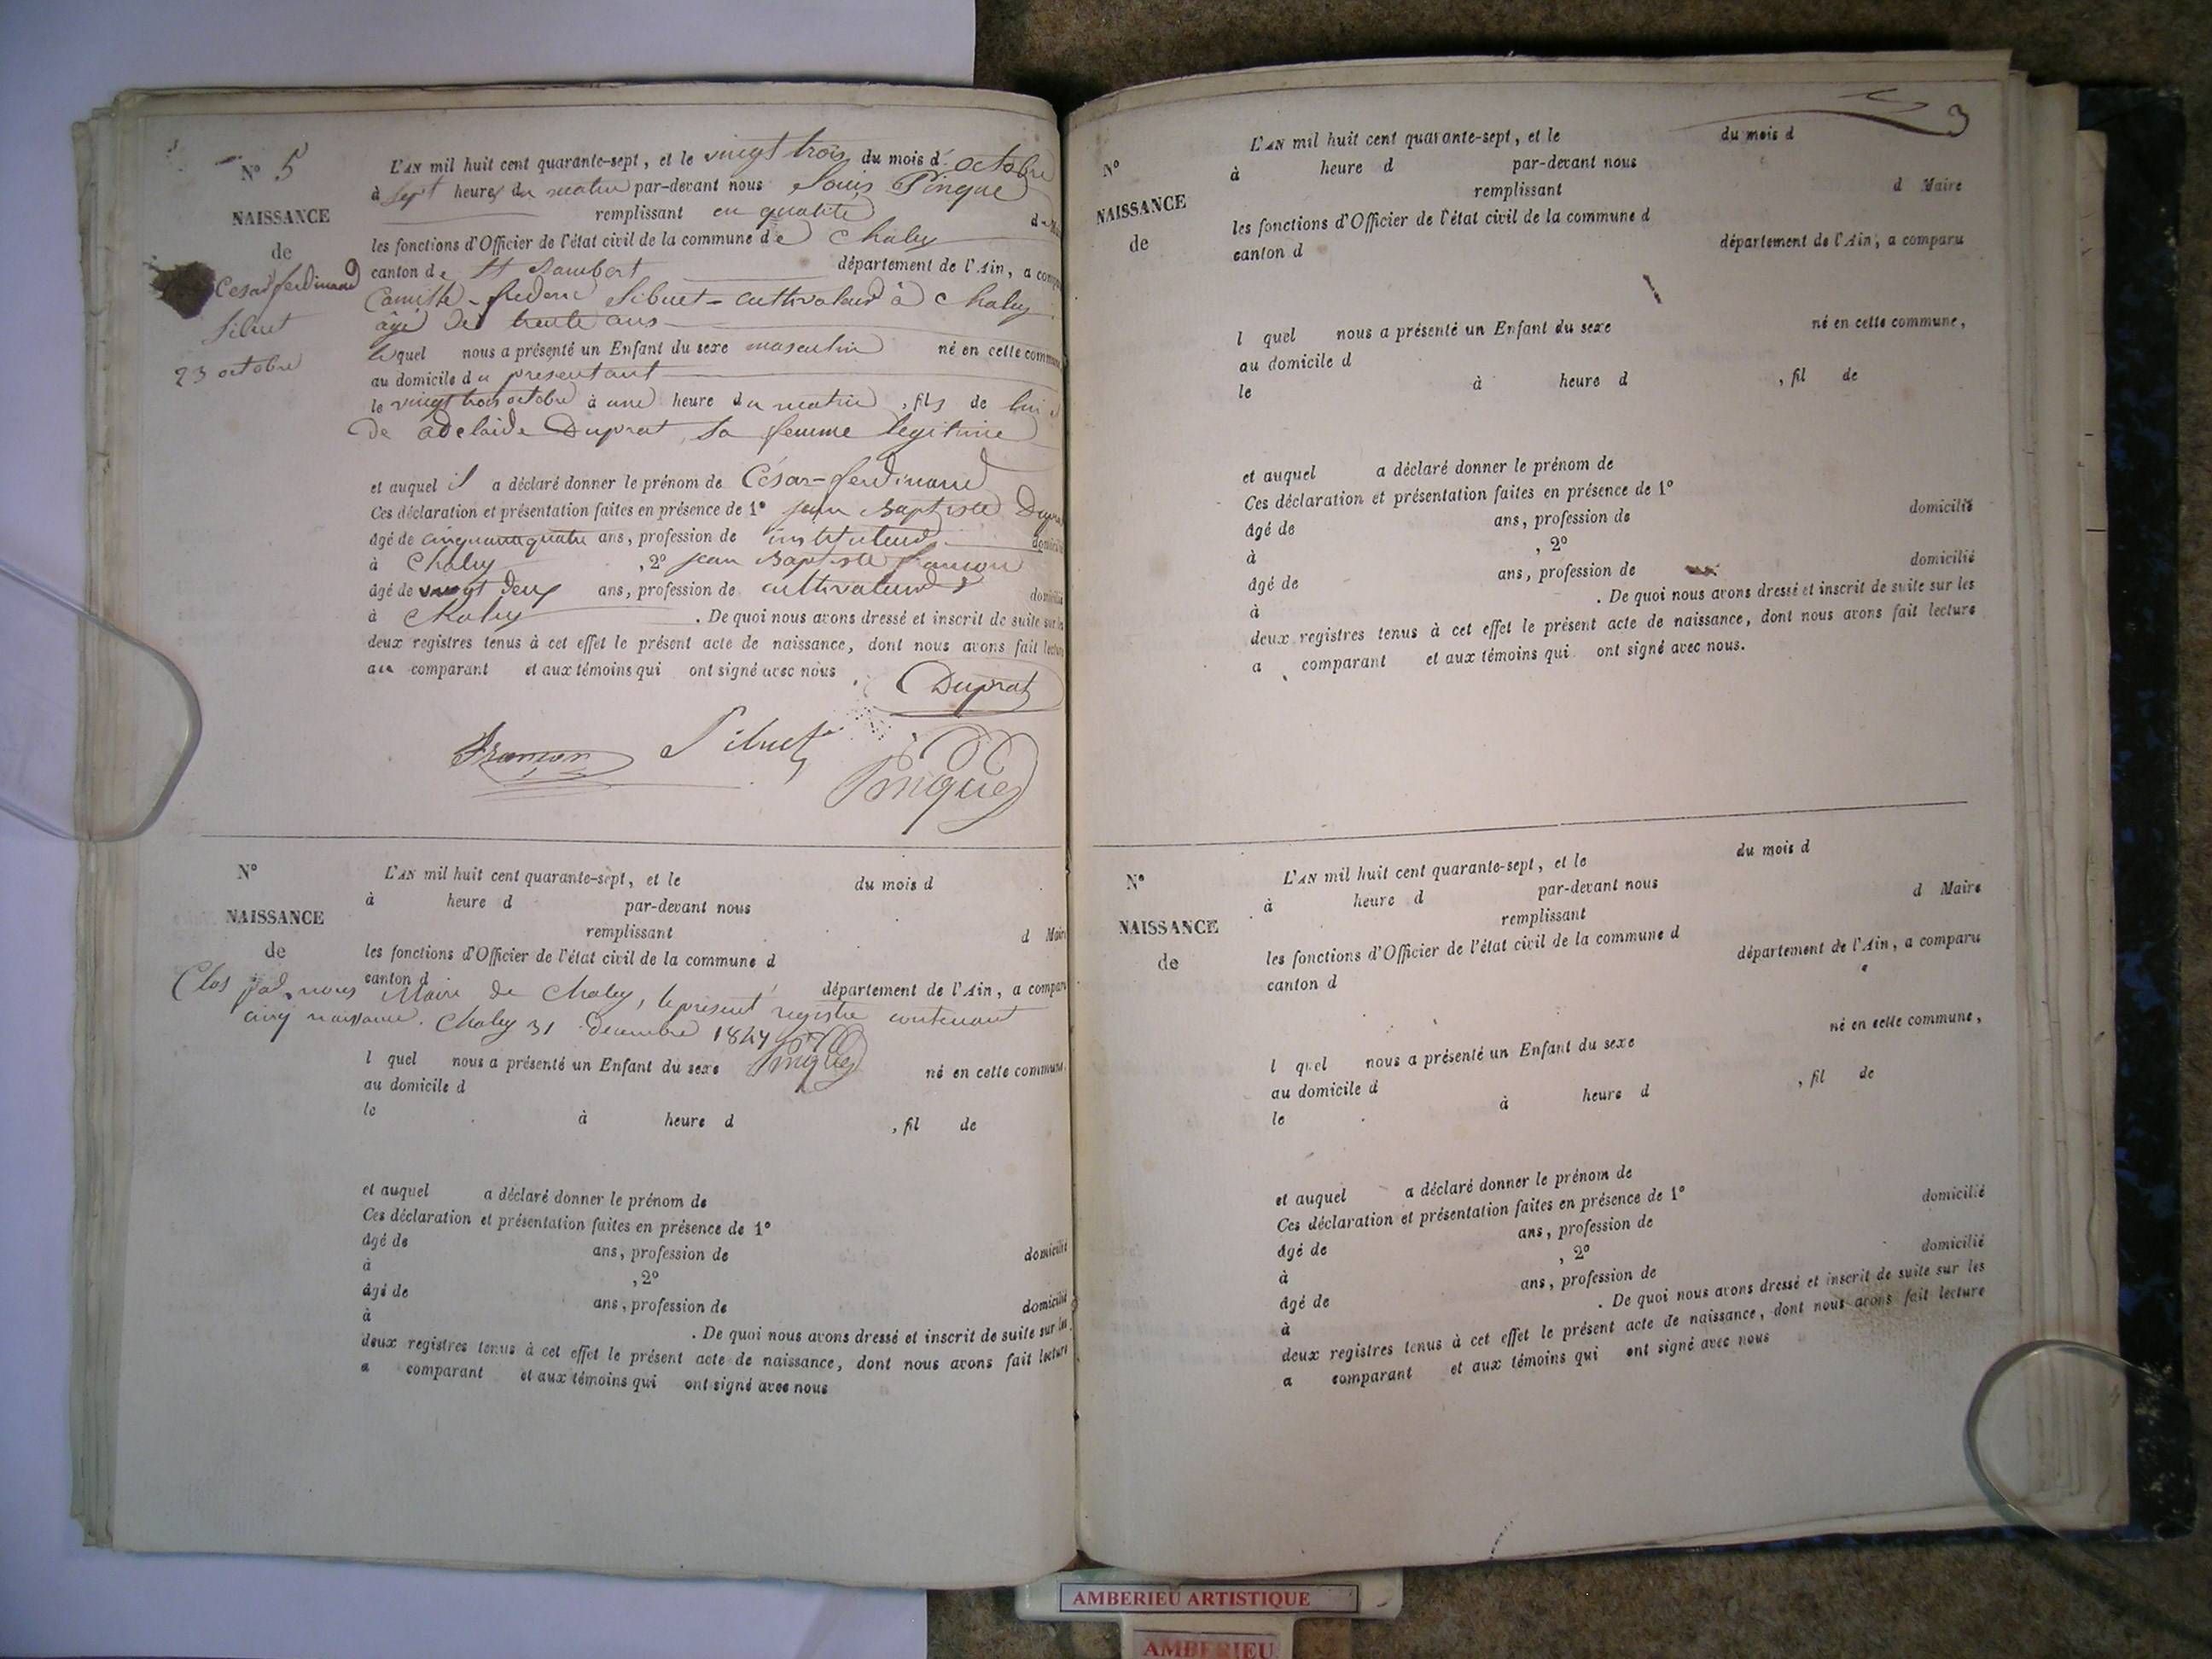 N° 5
NAISSANCE
de
Cesar ferdinand
Sibuet
23 octobre
L'AN mil huit cent quarante-sept, et le vingt trois du mois d'octobre
à sept heures du matin par-devant nous Louis Pingue
remplissant en qualité d
les fonctions d'Officier de l'état civil de la commune de Chaley
canton de St Rambert département de l'Ain, a compa
Camille - frederic Sibuet - cultivateur à Chaley
âgé de trente ans
lequel nous a présenté un Enfant du sexe masculin né en cette commun
au domicile du presentant
le vingt trois octobre à une heure du matin, fils de lui
de adelaide Duprat, sa femme legitime
et auquel il a déclaré donner le prénom de César-ferdinand
Ces déclaration et présentation faites en présence de 1° jean Baptiste Dupra
âgé de cinquante quatre ans, profession de instituteur domicilié
à Chaley, 2° jean Baptiste francon
âgé de vingt deux ans, profession de cultivateur domicilié
à Chaley. De quoi nous avons dressé et inscrit de suite sur le
deux registres tenus à cet effet le présent acte de naissance, dont nous avons fait lecture
au comparant et aux témoins qui ont signé avec nous
Duprat
Francon Sibuet
Pingue
N°
NAISSANCE
de
L'AN mil huit cent quarante-sept, et le du mois d
à heure d par-devant nous
remplissant d Maire
les fonctions d'Officier de l'état civil de la commune d
canton d département de l'Ain, a comparu
Clos par nous Maire de Chaley, le présent registre contenant
cinq naissance. Chaley 31 Decembre 1847
Pingue
l quel nous a présenté un Enfant du sexe né en cette commune
au domicile d
le à heure d , fil de
et auquel a déclaré donner le prénom de
Ces déclaration et présentation faites en présence de 1°
âgé de ans, profession de domicilié
à , 2°
âgé de ans, profession de domicilié
à . De quoi nous avons dressé et inscrit de suite sur les
deux registres tenus à cet effet le présent acte de naissance, dont nous avons fait lecture
a comparant et aux témoins qui ont signé avec nous
3
N°
NAISSANCE
de
L'AN mil huit cent quarante-sept, et le du mois d
à heure d par-devant nous
remplissant d Maire
les fonctions d'Officier de l'état civil de la commune d
canton d département de l'Ain, a comparu
l quel nous a présenté un Enfant du sexe né en cette commune,
au domicile d
le à heure d , fil de
et auquel a déclaré donner le prénom de
Ces déclaration et présentation faites en présence de 1°
âgé de ans, profession de domicilié
à , 2°
âgé de ans, profession de domicilié
à . De quoi nous avons dressé et inscrit de suite sur les
deux registres tenus à cet effet le présent acte de naissance, dont nous avons fait lecture
a comparant et aux témoins qui ont signé avec nous.
N°
NAISSANCE
de
L'AN mil huit cent quarante-sept, et le du mois d
à heure d par-devant nous
remplissant d Maire
les fonctions d'Officier de l'état civil de la commune d
canton d département de l'Ain, a comparu
l quel nous a présenté un Enfant du sexe né en cette commune,
au domicile d
le à heure d , fil de
et auquel a déclaré donner le prénom de
Ces déclaration et présentation faites en présence de 1°
âgé de ans, profession de domicilié
à , 2°
âgé de ans, profession de domicilié
à . De quoi nous avons dressé et inscrit de suite sur les
deux registres tenus à cet effet le présent acte de naissance, dont nous avons fait lecture
a comparant et aux témoins qui ont signé avec nous
AMBERIEU ARTISTIQUE
AMBERIEU